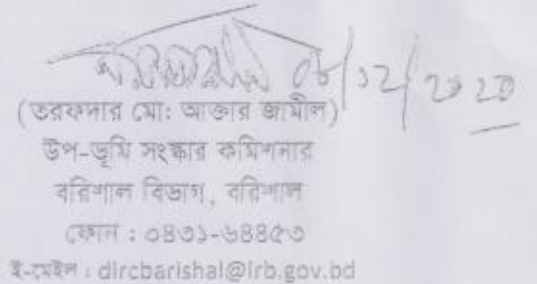 ০৮/১২/২০২০
(তরফদার মোঃ আক্তার জামীল)
উপ-ভূমি সংস্কার কমিশনার
বরিশাল বিভাগ, বরিশাল
ফোন : ০৪৩১-৬৪৪৫৩
ই-মেইল : dlrcbarishal@lrb.gov.bd